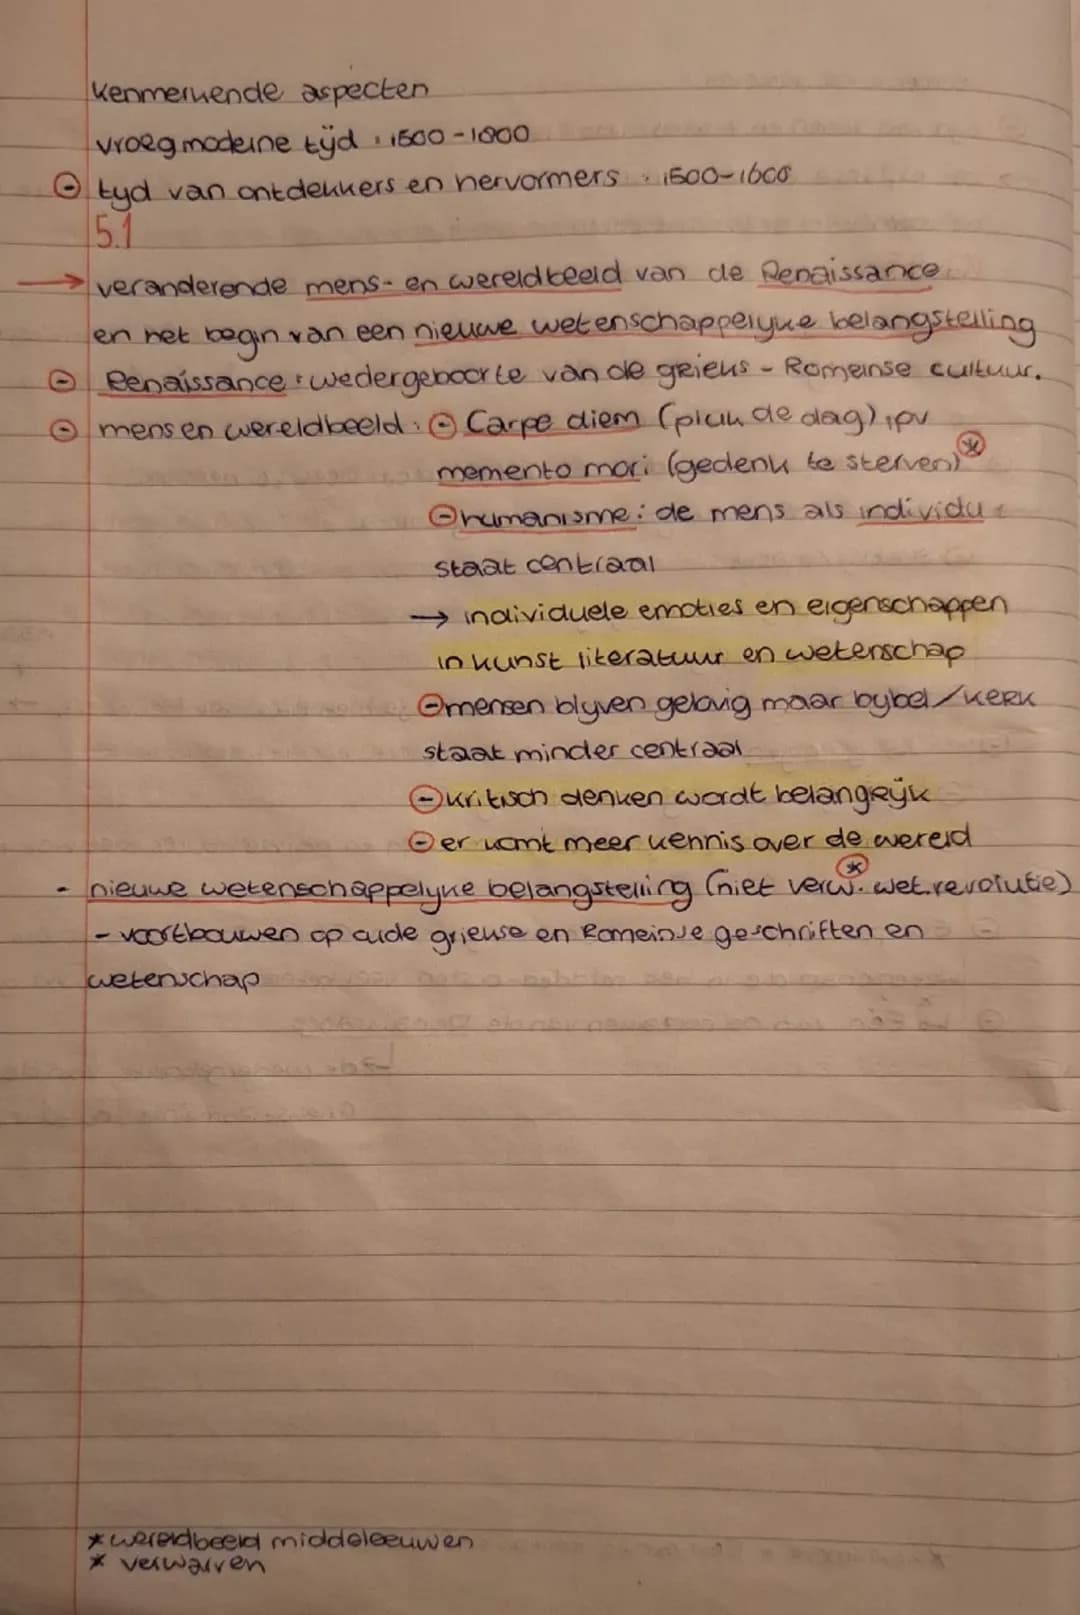 kenmerkende aspecten
vroegmoderne tijd : 1500-1800
tyd van ontdekkers en hervormers : 1500-1600
5.1
→ veranderende mens- en wereldbeeld van de Renaissance
en het begin van een nieuwe wetenschappelyke belangstelling
Renaissance : wedergeboorte van de grieks - Romeinse cultuur.
mens en wereldbeeld : - Carpe diem (pluk de dag) ipv
memento mori (gedenk te sterven) *
- humanisme : de mens als individu
staat centraal
→ individuele emoties en eigenschappen
in kunst literatuur en wetenschap
- mensen blyven gelovig maar bybel / kerk
staat minder centraal
- kritisch denken wordt belangrijk
- er komt meer kennis over de wereld
- nieuwe wetenschappelyke belangstelling (niet verw. * wet.revolutie)
- voortbouwen op oude griekse en Romeinse geschriften en
wetenschap
* wereldbeeld middeleeuwen
* verwarren